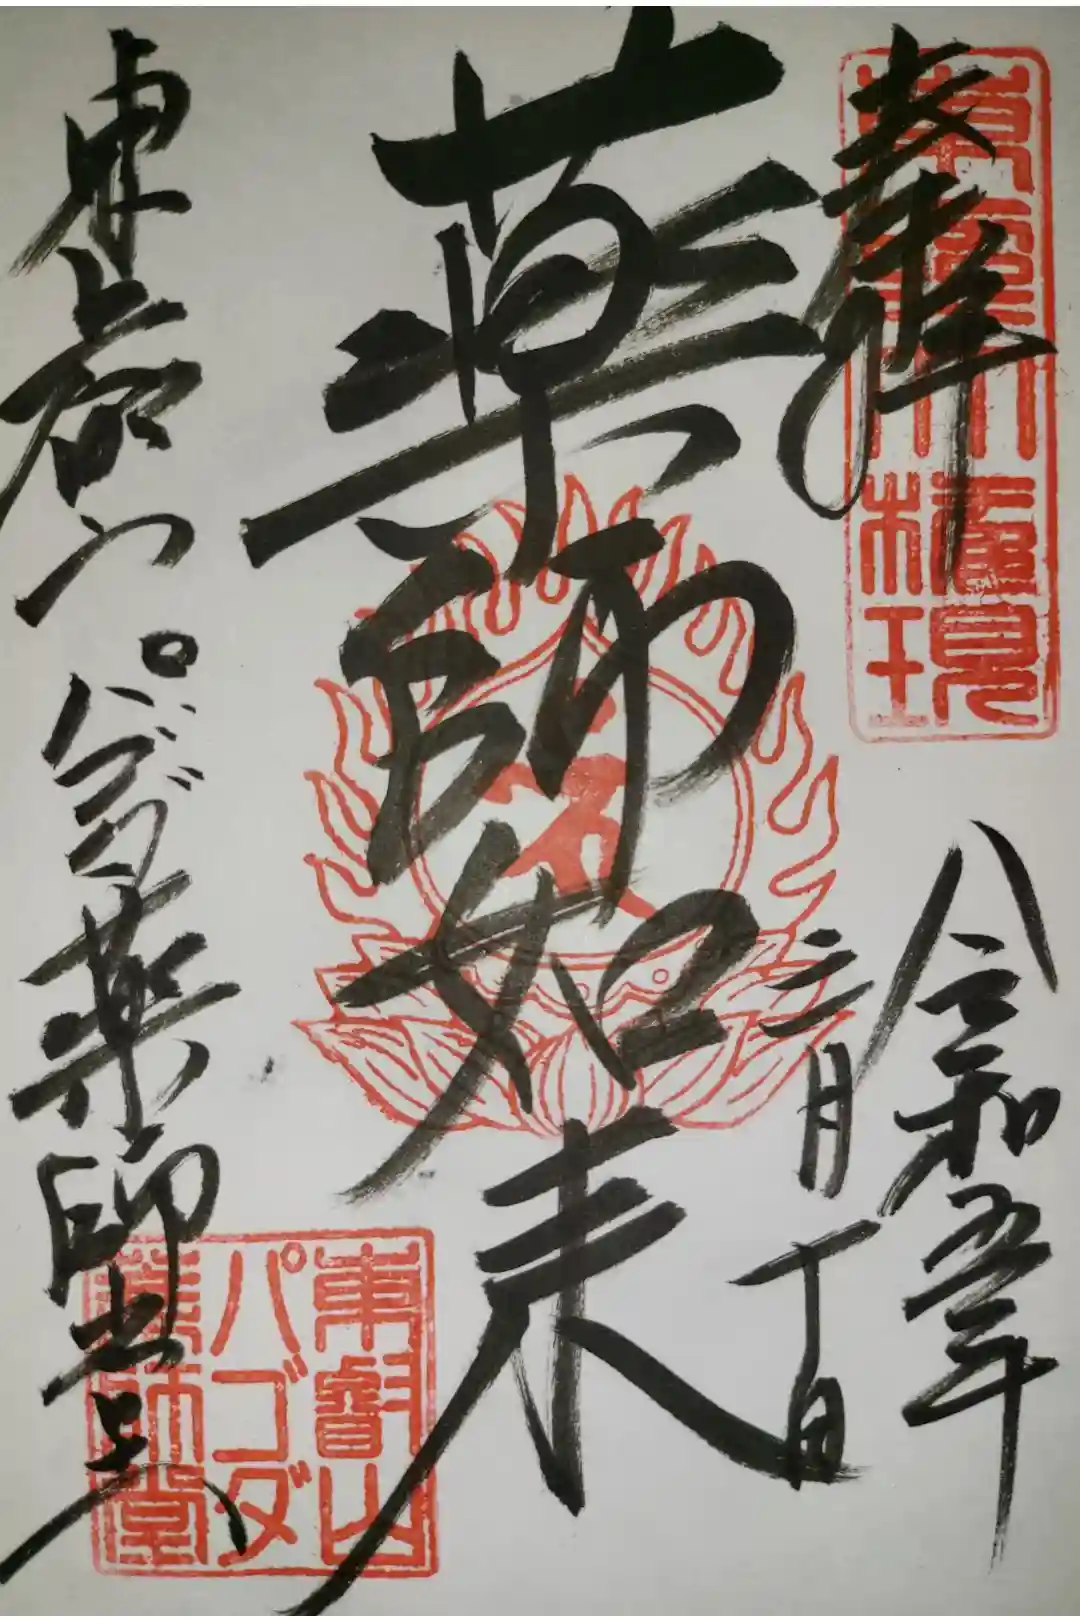 奉拝
令和五年
三月一日
薬師如来
東叡山 パゴダ薬師堂
東叡山
パゴダ
薬師堂